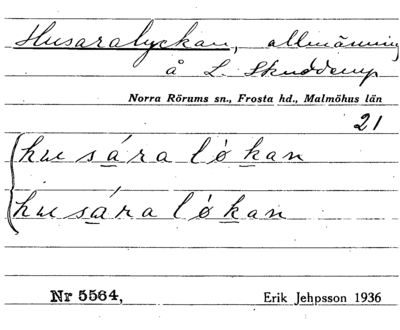 Husaralyckan, allmänning
å L. Skuddarp
Norra Rörums sn., Frosta hd., Malmöhus län
21
husáralȯkan
husáralȯkan
Nr 5564,
Erik Jehpsson 1936